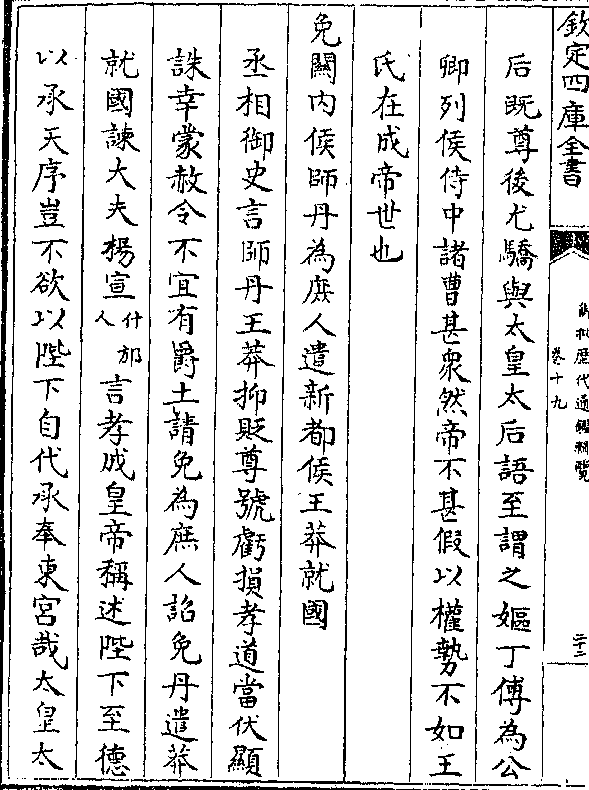 欽定四庫全書
御批歷代通鑑輯覽
卷十九
二十三
后既尊後尤驕與太皇太后語至謂之嫗丁傅為公
卿列侯侍中諸曹甚衆然帝不甚假以權勢不如王
氏在成帝世也
免關内侯師丹為庶人遣新都侯王莽就國
丞相御史言師丹王莽抑貶尊號虧損孝道當伏顯
誅幸蒙赦令不宜有爵土請免為庶人詔免丹遣莽
就國諫大夫楊宣什邡人言孝成皇帝稱述陛下至德
以承天序豈不欲以陛下自代承奉東宫哉太皇太